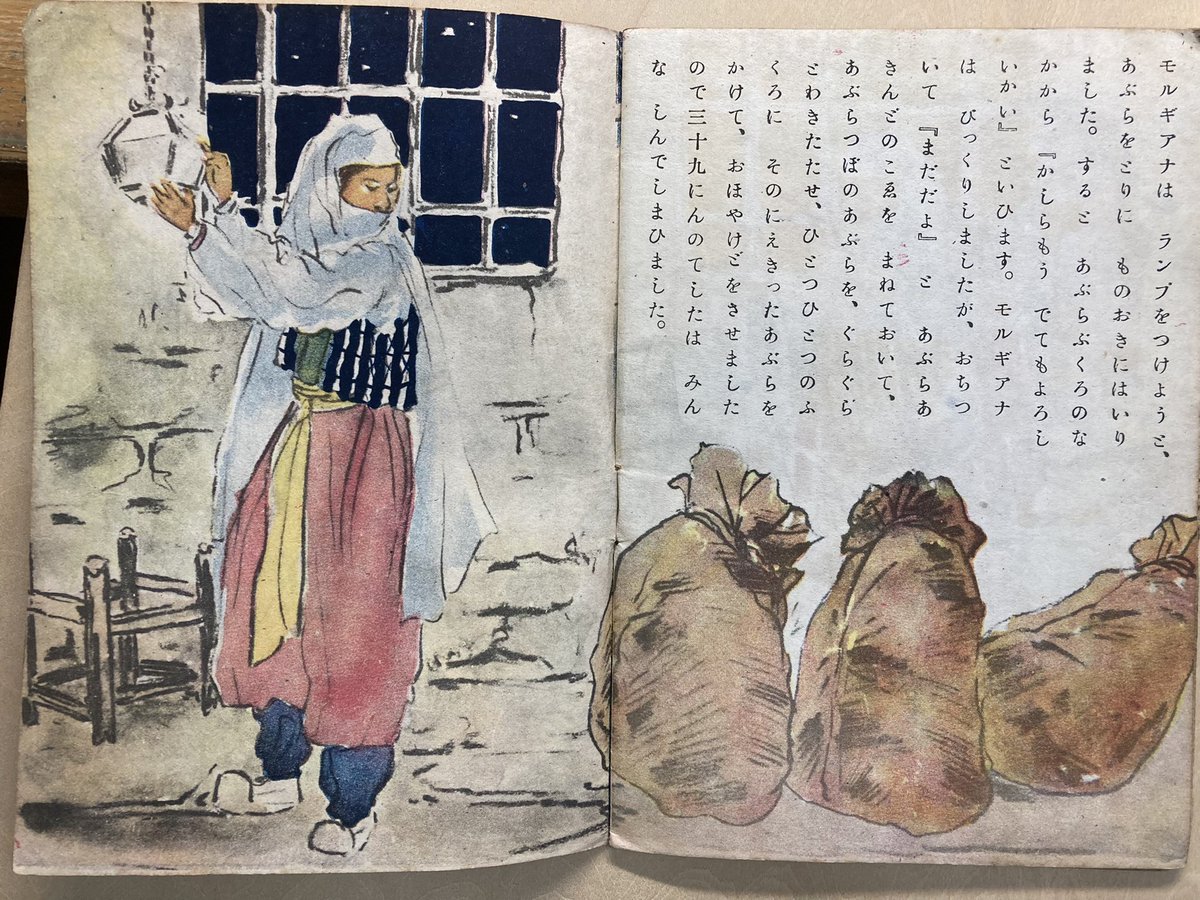 モルギアナは ランプをつけようと、
あぶらをとりに ものおきにはいり
ました。すると あぶらぶくろのな
かから 『かしらもう でてもよろし
いかい』 といひます。モルギアナ
は びっくりしましたが、おちつ
いて 『まだだよ』 と あぶらあ
きんどのこゑを まねておいて、
あぶらつぼのあぶらを、ぐらぐら
とわきたたせ、ひとつひとつのふ
くろに そのにえきったあぶらを
かけて、おほやけどをさせました
ので三十九にんのてしたは みん
な しんでしまひました。